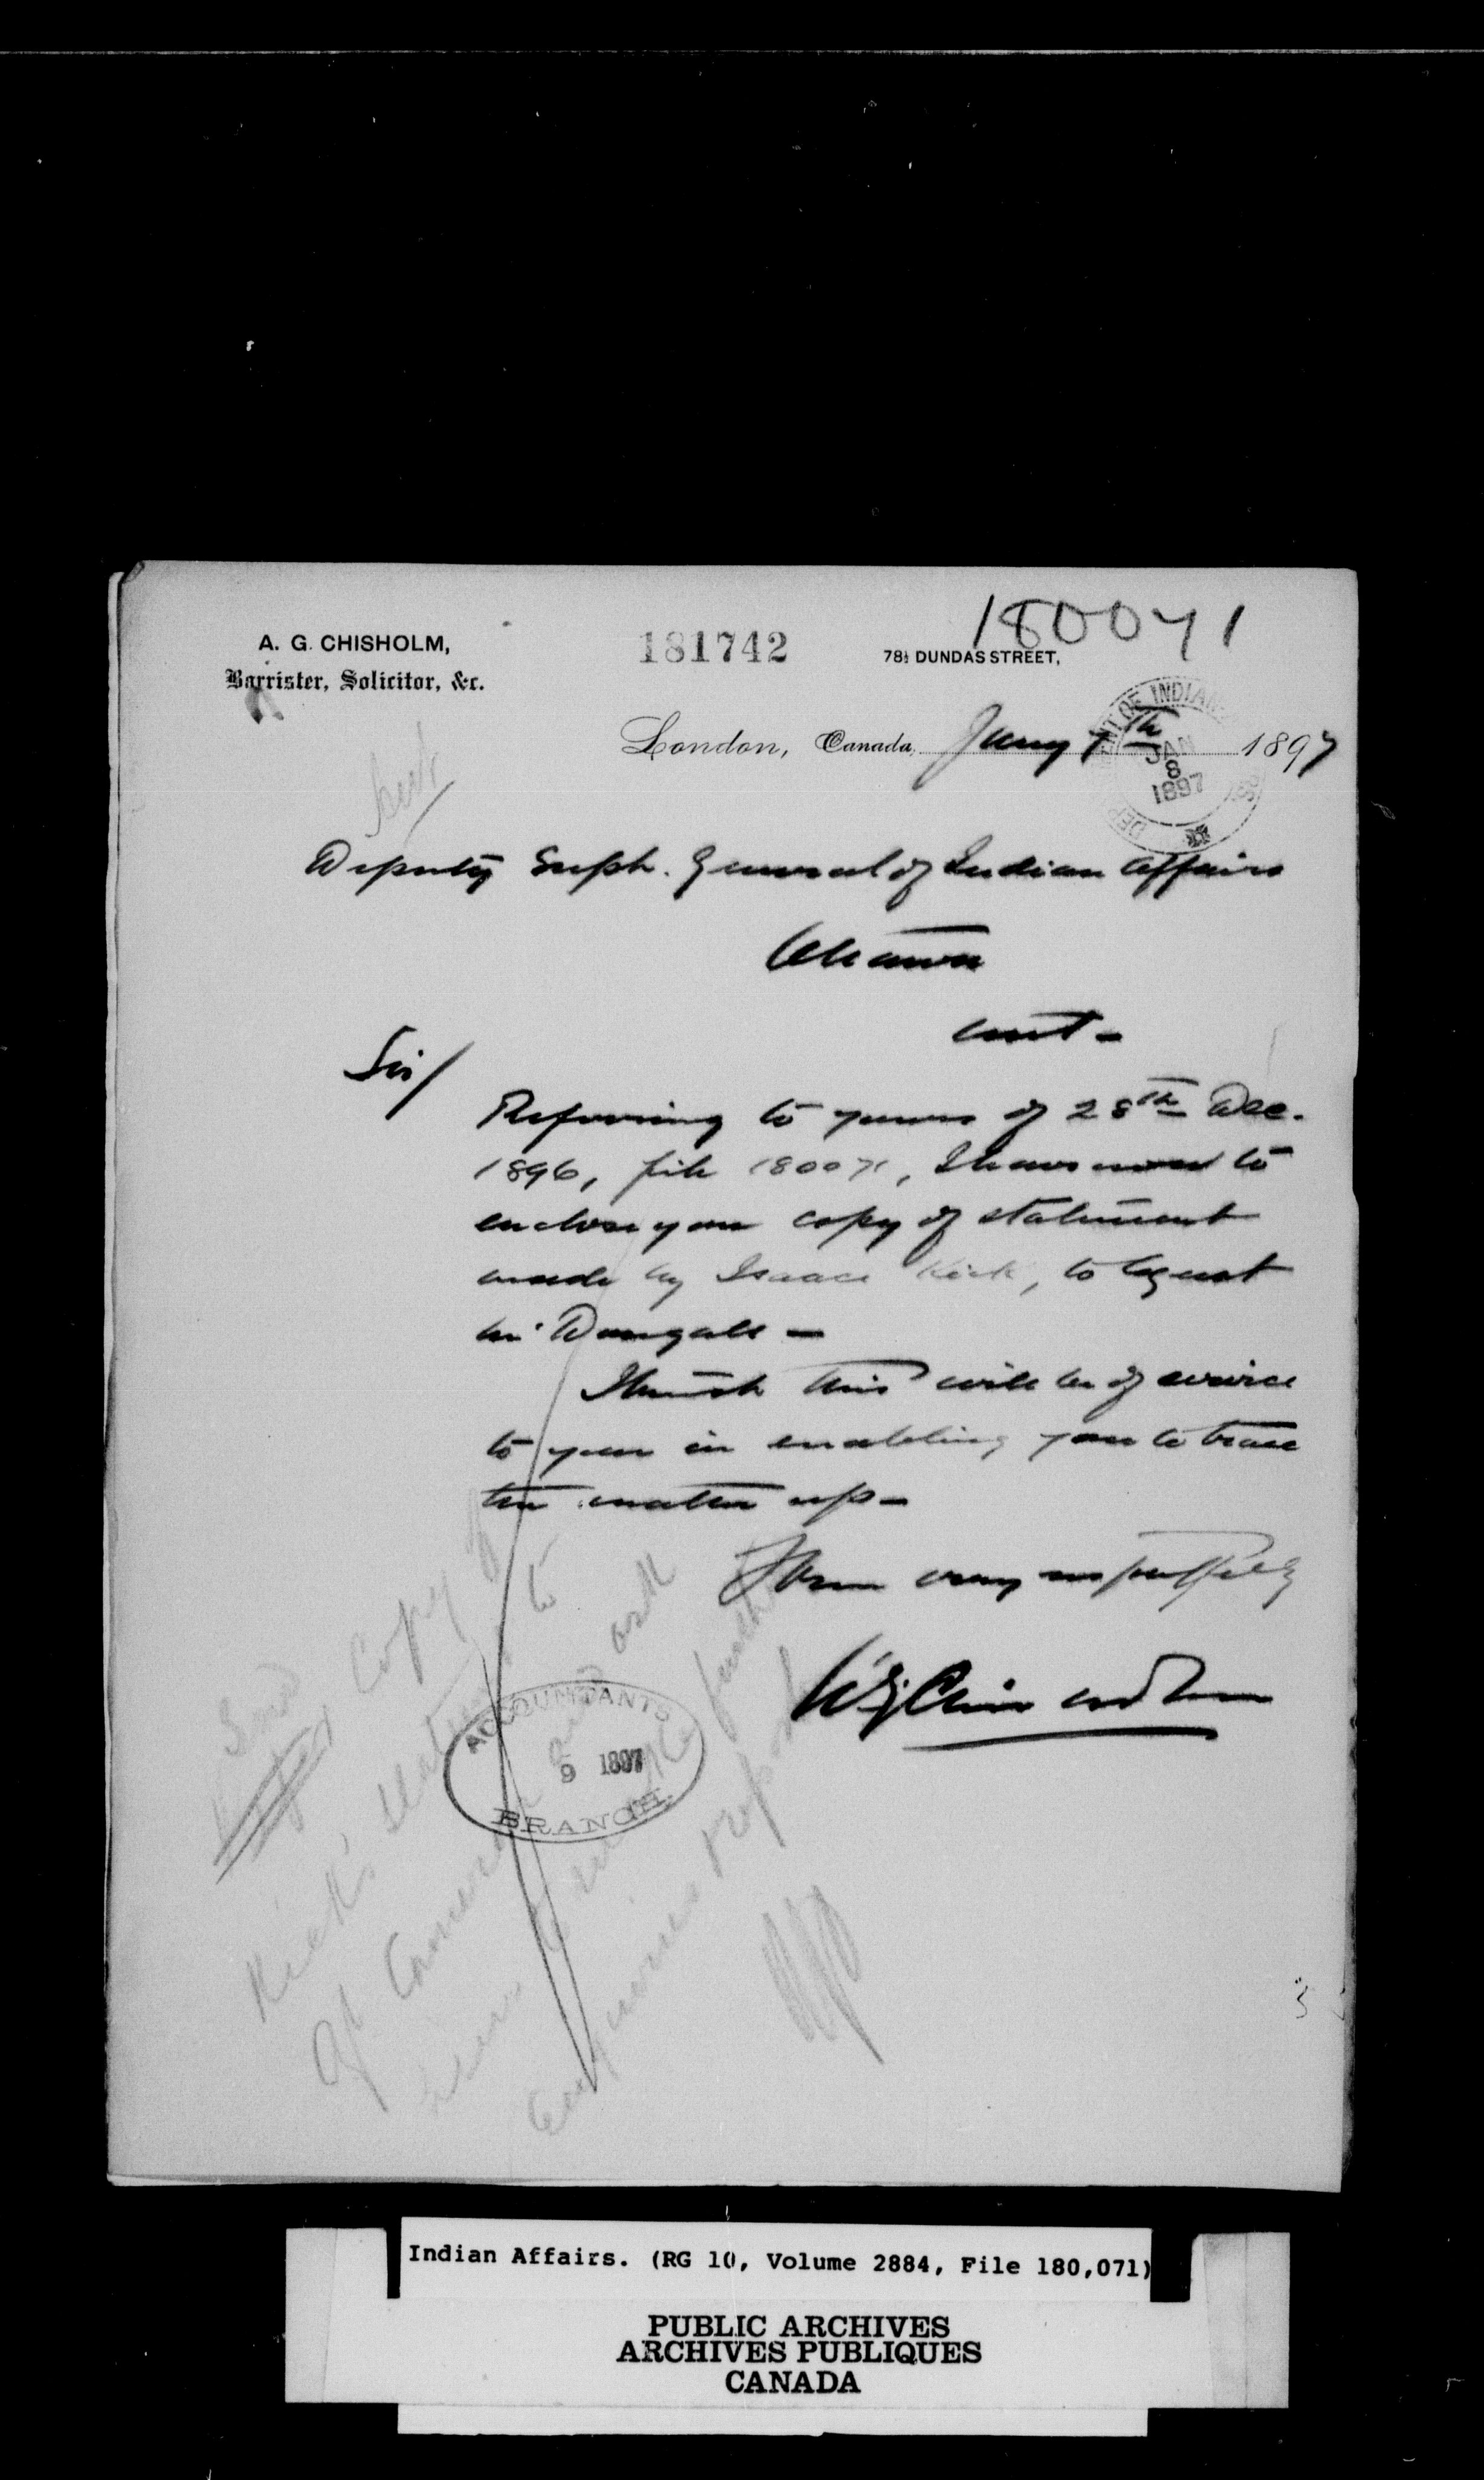 A. G. CHISHOLM,
Barrister, Solicitor, &c.
181742
180071
78½ DUNDAS STREET,
London, Canada, Jany 7th 1897
JAN 8 1897
Deputy Supt. General of Indian Affairs
Ottawa
Ont -
Sir/
Referring to yours of 28th Dec.
1896, file 180071, I have now to
enclose you copy of statement
made by Isaac Kick, to Agent
McDougall -
I think this will be of service
to you in enabling you to trace
the matter up -
I am very respectfully
A G Chisholm
Send copy of
Kick's statement to
Agt Cameron and ask
him to make further
enquiries & report
ACCOUNTANT'S
9 1897
BRANCH.
Indian Affairs. (RG 10, Volume 2884, File 180,071)
PUBLIC ARCHIVES
ARCHIVES PUBLIQUES
CANADA